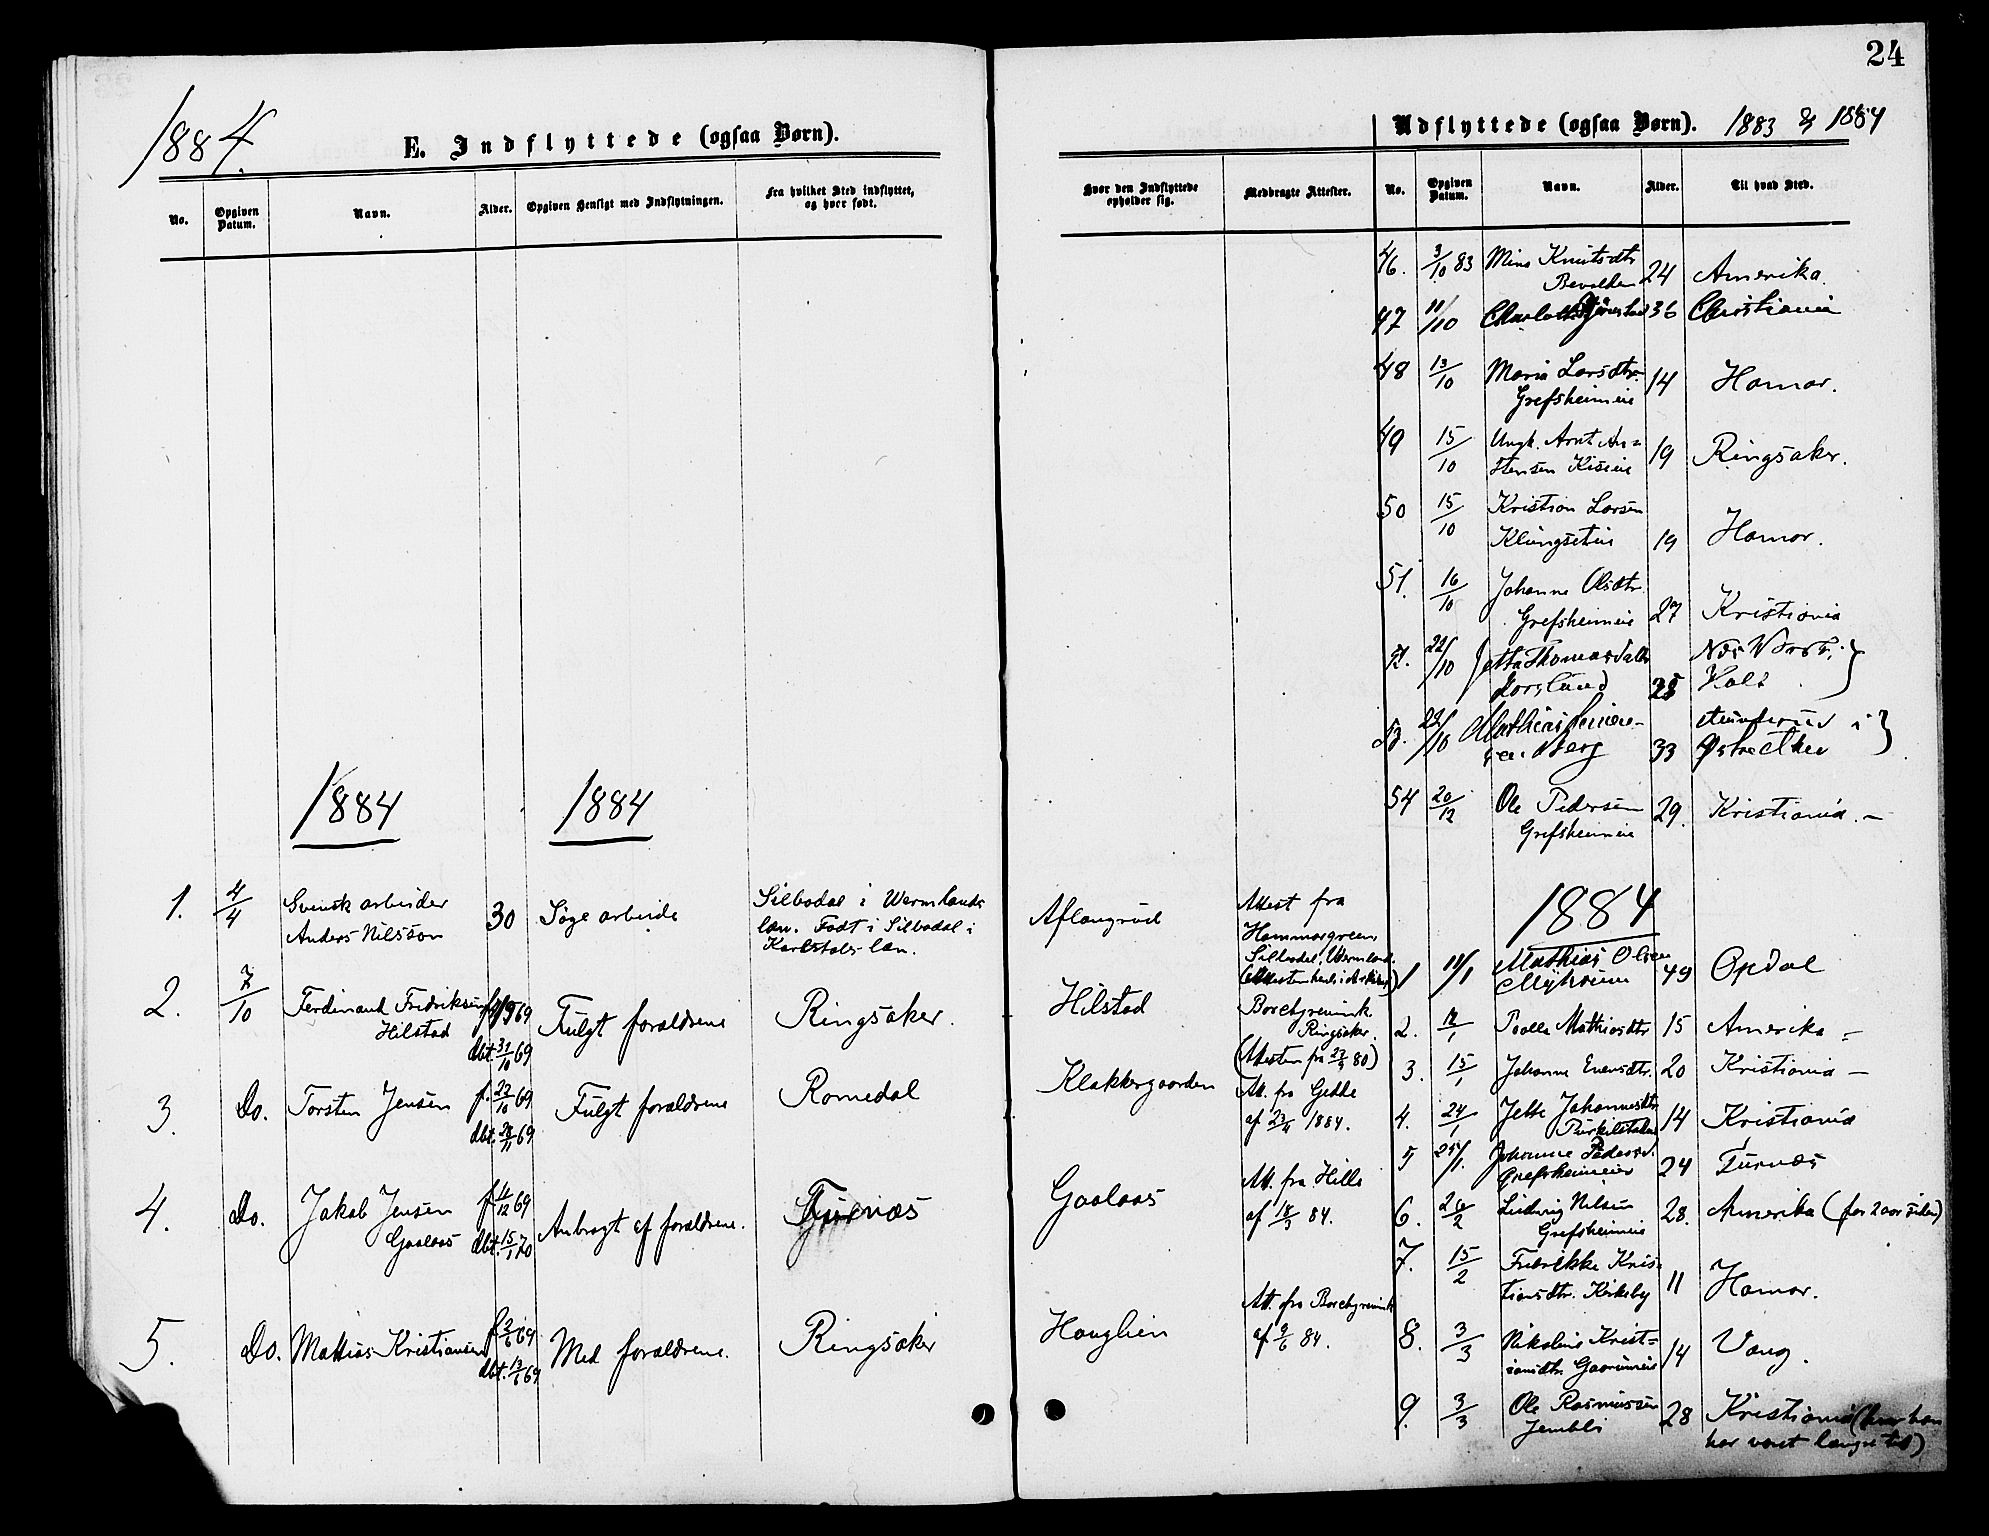 24
1884.
E. Indflyttede (ogsaa Børn).
No.
Opgiven Datum.
Navn.
Alder.
Opgiven Hensigt med Indflytningen.
Fra hvilket Sted indflyttet, og hvor født.
1884
1884
1. 4/4 Svensk arbeider 30 Søge arbeide Silbodal i Wermlands
Anders Nilsson län. Født i Silbodal i
Karlstads län.
2. 7/10 Ferdinand Fredriksen 69 Fulgt forældrene Ringsaker.
Hilstad
dbt. 31/10 69
3. Do. Torsten Jensen f. 23/10 69 Fulgt forældrene Romedal
dbt. 28/11 69
4. Do. Jakob Jensen f. 11/12 69 Anbragt af forældrene. Furnæs
Gaalaas dbt. 15/1 70
5. Do. Mathias Kristiansen f. 2/6 69 Med forældrene. Ringsaker
dbt. 13/6 69
Hvor den Indflyttede opholder sig.
Medbragte Attester.
Aflangrud Attest fra
Hammargreen
Silbodal, Wermland.
Hilstad Borchgrevink
Ringsaker.
(Attesten fra 80)
Klakkergaarden Att. fra Gedde
af 23/4 1884.
Gaalaas Att. fra Hille
af 18/3 84.
Haughien Att. fra Borchgrevink
af 9/6 84.
Udflyttede (ogsaa Børn). 1883 & 1884
No.
Opgiven Datum.
Navn.
Alder.
Til hvad Sted.
46. 3/10 83 Mina Knutsdtr 24 Amerika.
47 11/10 Charlotte 36 Christiania
48 13/10 Maria Larsdtr. 14 Hamar.
Grefsheimeie
49 15/10 Ungk. Arnt An=
stensen Kiseie 19 Ringsaker.
50 15/10 Kristian Larsen
Klungseteie 19 Hamar.
51. 16/10 Johanne Olsdtr.
Grefsheimeie 27 Kristiania
52. 22/10 Jetta Thomasdatter Næs Værk,
28 Holt
53. 22/10 Mathias
Berg 33
54 20/12 Ole Pedersen 29. Kristiania. –
Grefsheimeie
1884
1 11/1 Mathias Olsen
Myhrum 49 Opdal
2. 12/1 Paolla Mathiasdtr 15 Amerika =
3. 15/1 Johanne Evensdtr. 20 Kristiania –
4. 24/1 Jette Johannesdtr 14 Kristiania
5 25/1. Johanne Pedersd.
Grefsheimeier 24 Furnæs
6. 26/2 Ludvig Nilsen 28. Amerika (for 2 aar siden)
Grefsheimeie
7. 15/2 Fredrikke Kris=
tiansdtr. Kirkeby 11 Hamar.
8. 3/3 Nikoline Krist=
iansdtr. 14 Vang.
9. 3/3 Ole Rasmussen 28 Kristiania (hvor han
Jembli har været længre tid)